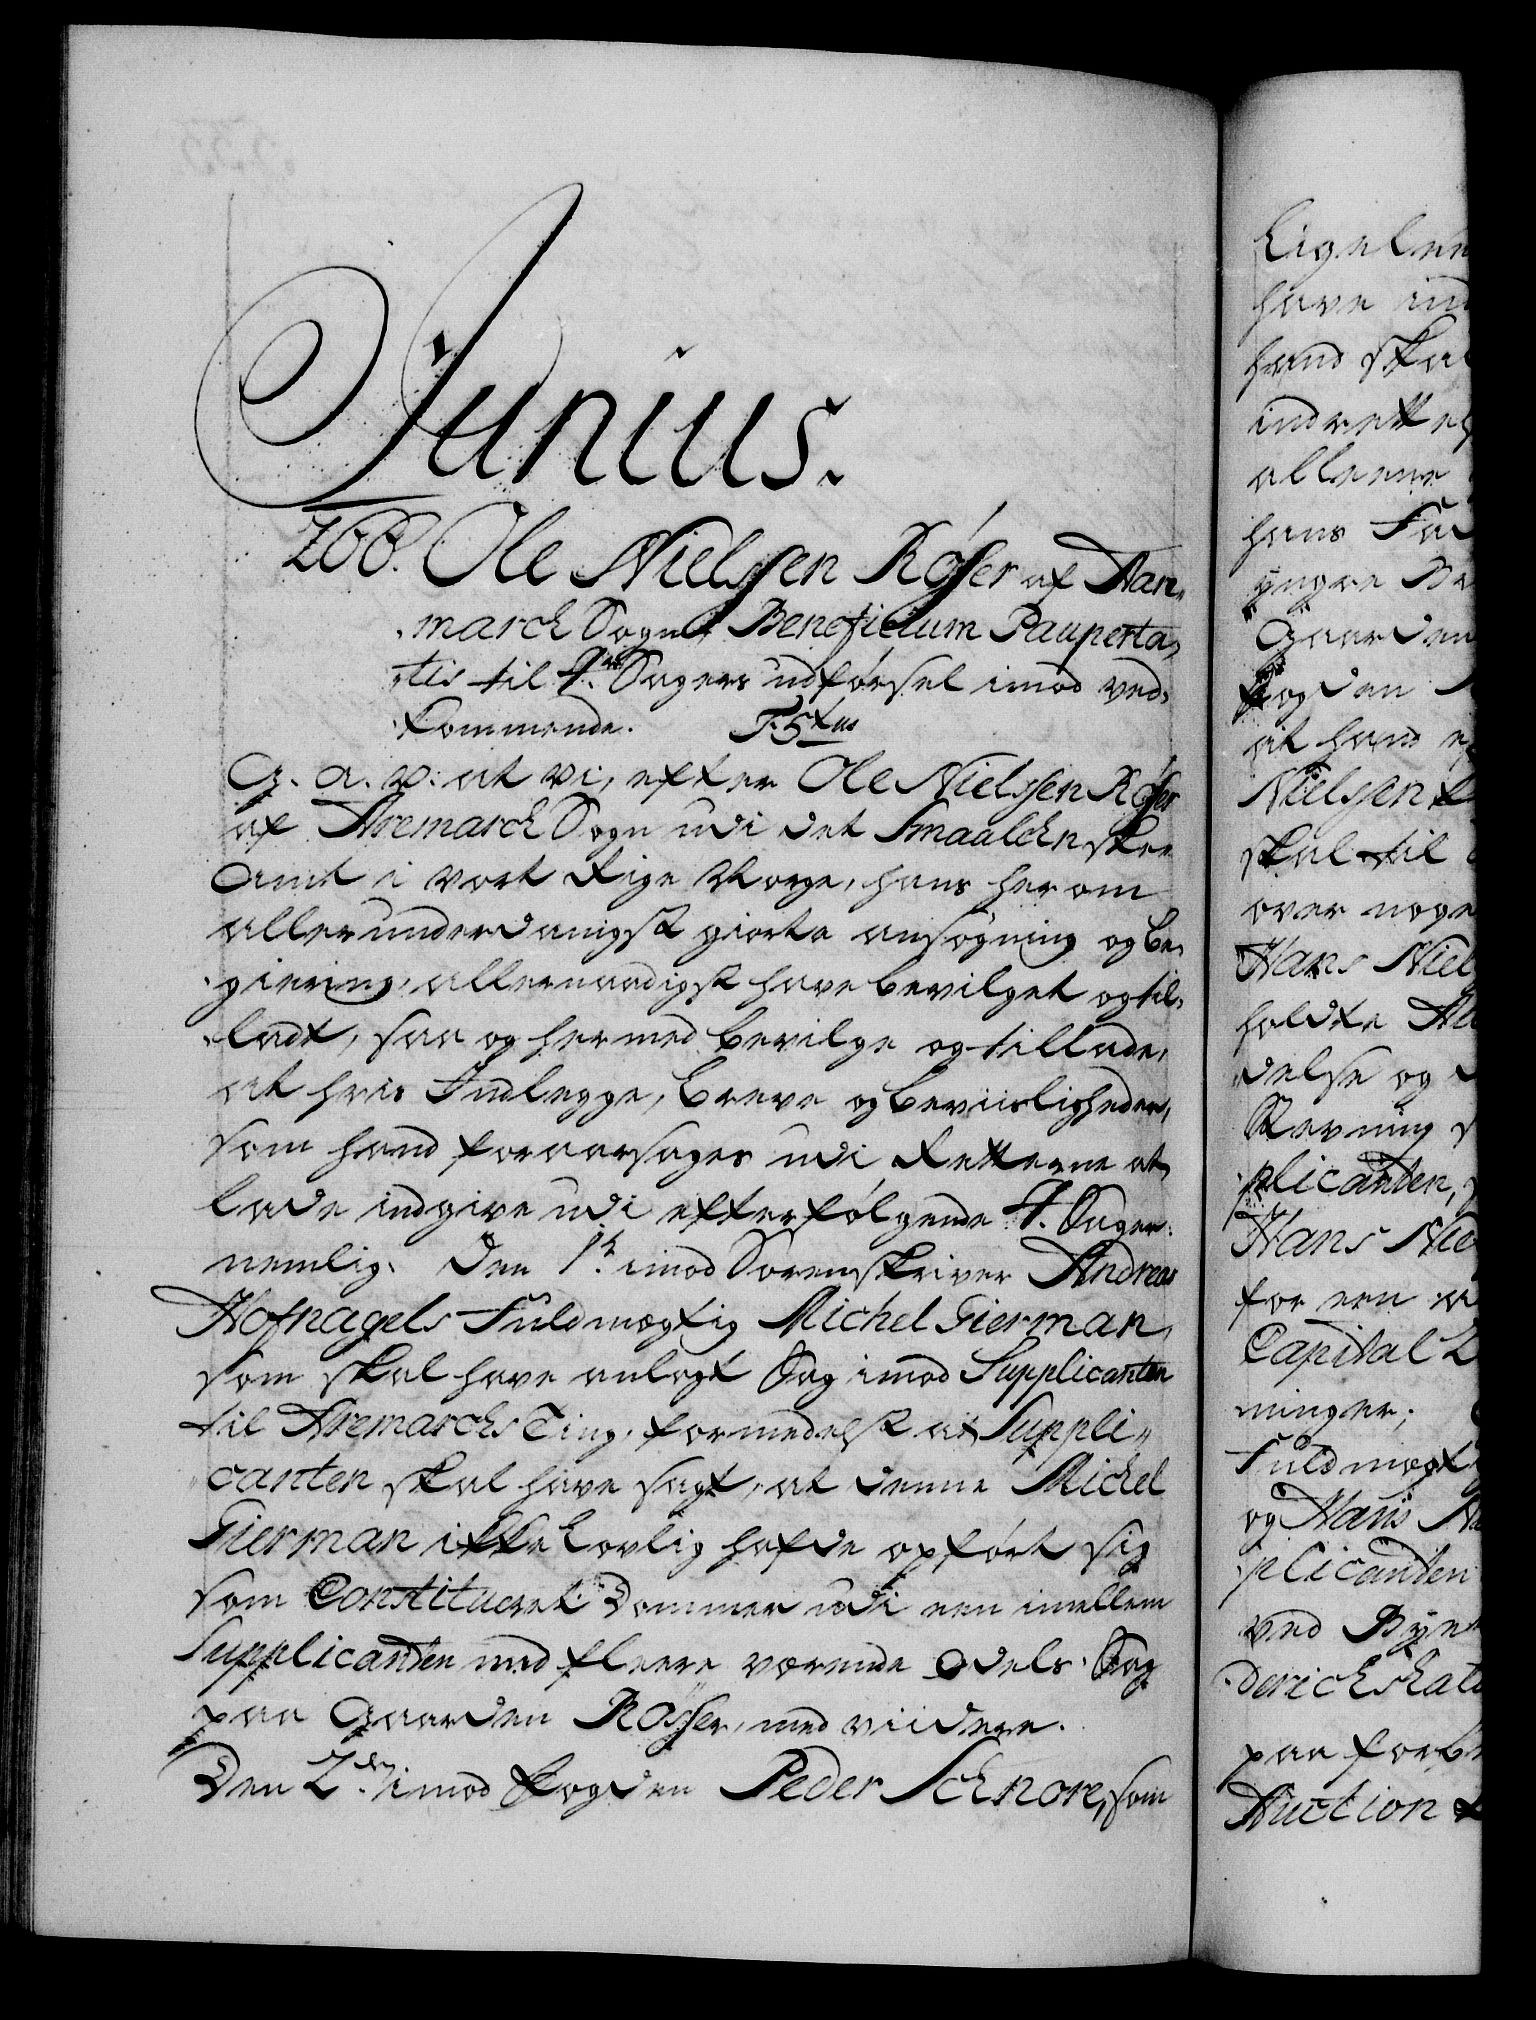 Junius.
200. Ole Nielssen Røser af Aar„
marck Sogns Beneficium Pauperta„
tis til 4re Sagers udførsel imod ved„
kommende. F. 5tus
G. a. v: at vi, efter Ole Nielssen Røser
af Aremarck Sogn udi det Smaalehnske
Amt i vort Rige Norge, hans herom
allerunderdanigst giorte ansøgning og be„
giering, allernaadigst have bevilget og til„
ladt, saa og hermed bevilge og tillade,
at hvis Indlegge, breve og beviisligheder,
som hand foraarsages udi Retterne at
lade indgive udi efterfølgende 4. Sager.
nemlig. Den 1te imod Sorenskriver Andreas
Hofnagels Fuldmægtig Michel Gierman,
som skal have anlagt Sag imod Supplicanten
til Aremarchs Ting, formedelst at Suppli„
canten skal have sagt, at denne Michel
Gierman ikke Lovlig hafde opført sig
som Constitueret Dommer udi een imellem
Supplicanten med fleere værende Odels-Sag
paa Gaarden Røsser, med viidere.
Den 2den imod fogden Peder Schnore, som
Ligeleed
have ind
hand skal
indrettel
alleene
hans Fad
yngre Br
Gaarden
fogden
at hand
Nielssen
skal til
over noge
Hans Niel
holdte
delse og
Revning
plicanten,
Hans Niel
for een
Capital
ninger;
Fuldmægt
og Hans
plicanten
ved Bye
derichshald
paa forb
Auction